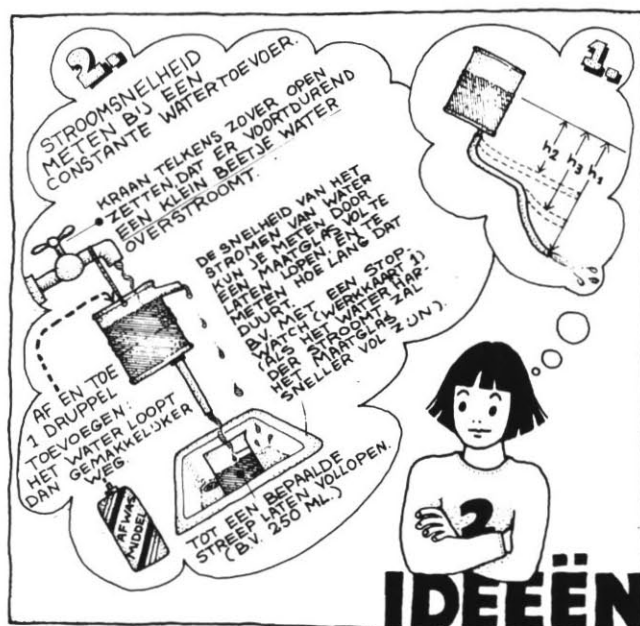 2.
STROOMSNELHEID
METEN BIJ EEN
CONSTANTE WATERTOEVOER.
KRAAN TELKENS ZOVER OPEN
ZETTEN, DAT ER VOORTDUREND
EEN KLEIN BEETJE WATER
OVERSTROOMT.
DE SNELHEID VAN HET
STROMEN VAN WATER
KUN JE METEN DOOR
EEN MAATGLAS VOL TE
LATEN LOPEN EN TE
METEN HOE LANG DAT
DUURT.
B.V. MET EEN STOP-
WATCH (WERKKAART 1)
(ALS HET WATER HAR-
DER STROOMT ZAL
HET MAATGLAS
SNELLER VOL ZIJN).
AF EN TOE
1 DRUPPEL
TOEVOEGEN:
HET WATER LOOPT
DAN GEMAKKELIJKER
WEG.
AFWAS
MIDDEL
TOT EEN BEPAALDE
STREEP LATEN VOLLOPEN.
(B.V. 250 ML.)
1.
h2
h3
h1
2
IDEEËN